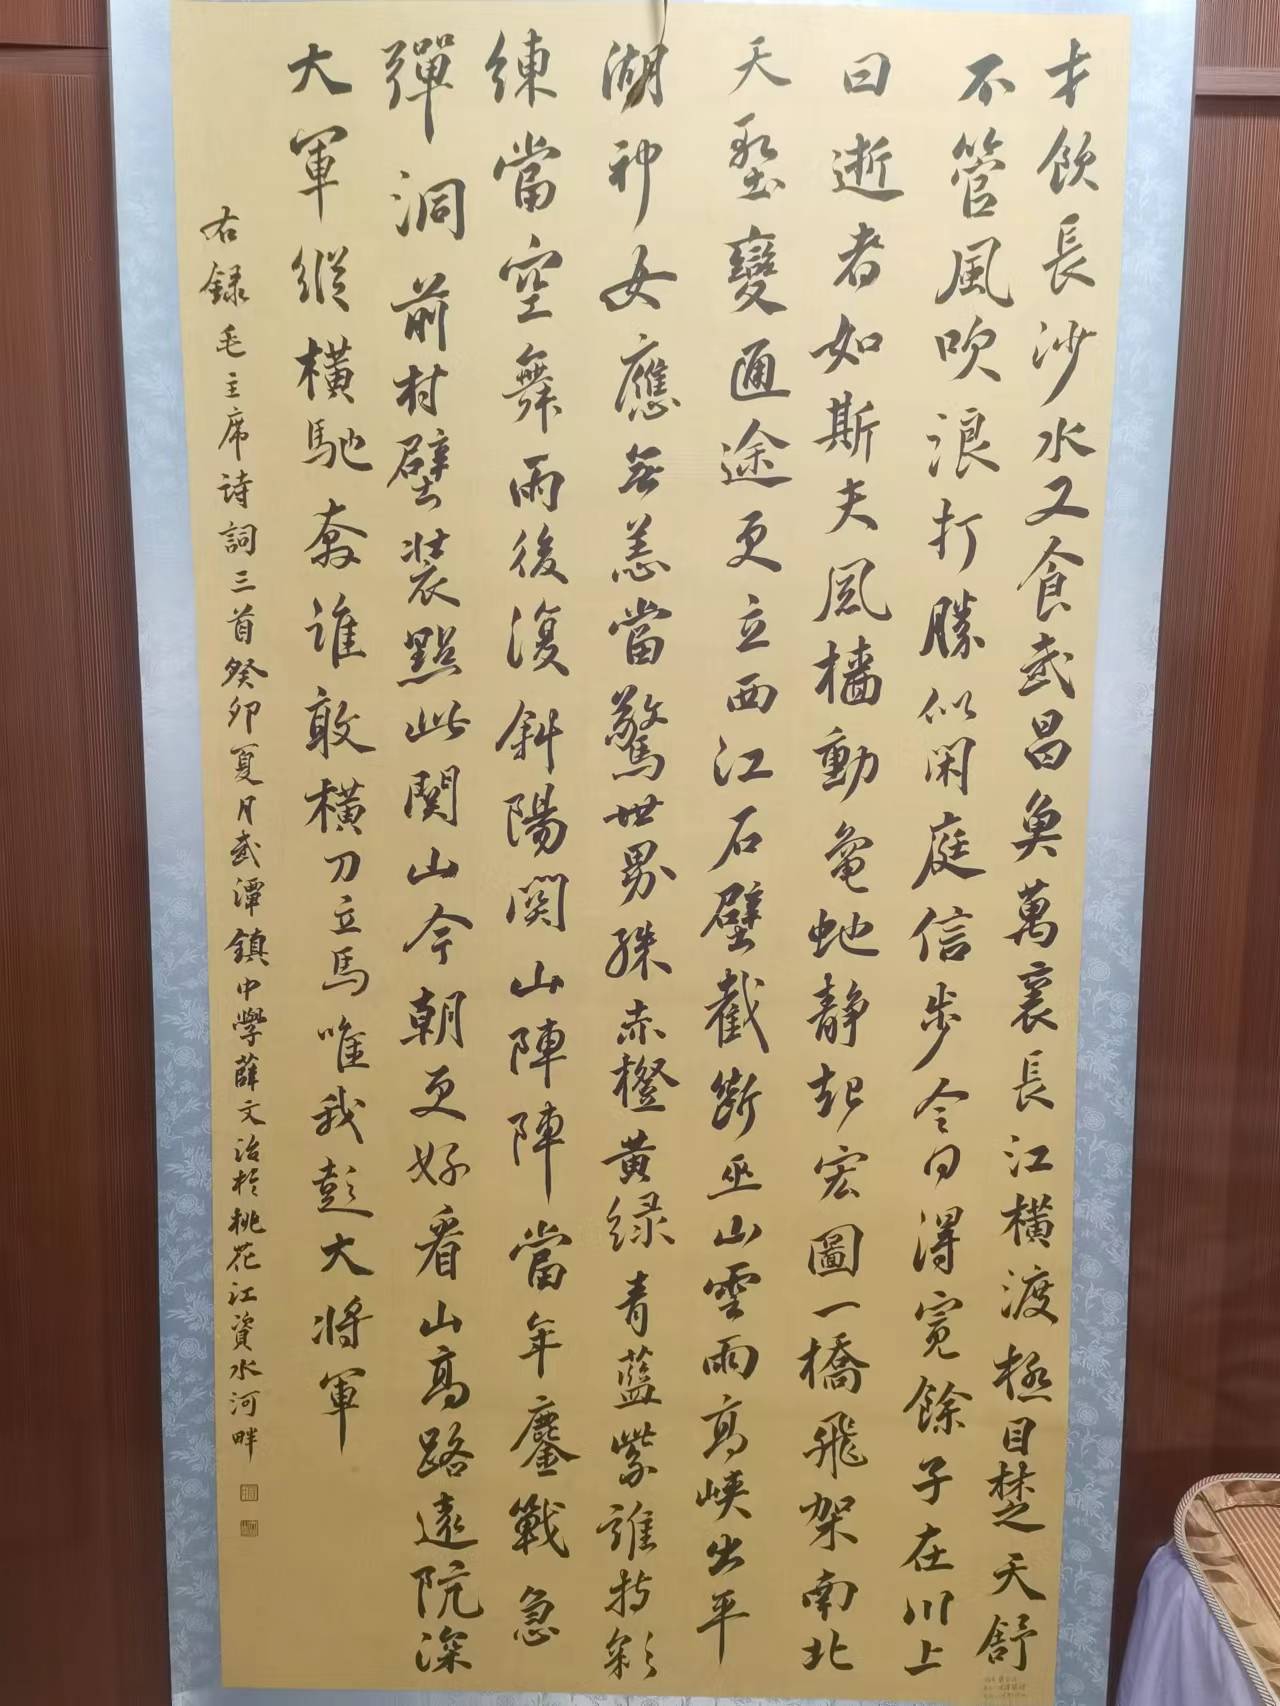 才飲長沙水又食武昌魚萬裏長江橫渡極目楚天舒
不管風吹浪打勝似閑庭信步今日得寬餘子在川上
曰逝者如斯夫風檣動龜虵靜起宏圖一橋飛架南北
天塹變通途更立西江石壁截斷巫山雲雨高峽出平
湖神女應無恙當驚世界殊赤橙黃綠青藍紫誰持彩
練當空舞雨後復斜陽関山陣陣當年鏖戰急
彈洞前村壁裝點此関山今朝更好看山高路遠阬深
大軍縱橫馳奔誰敢橫刀立馬唯我彭大將軍
右録毛主席诗詞三首癸卯夏月武潭鎮中學薛文治於桃花江資水河畔